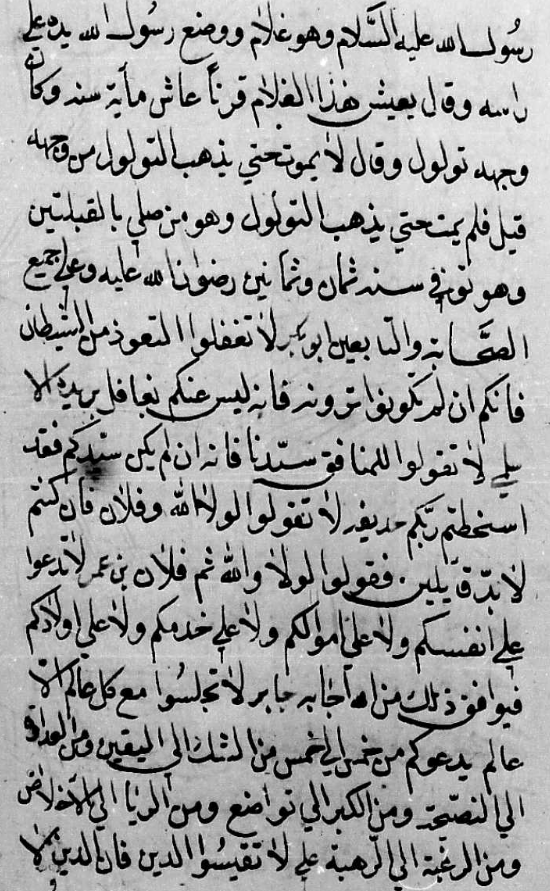 رسول الله عليه السلام وهو غلام ووضع رسول الله يده علي
راسه وقال يعيش هذا الغلام قرناً عاش مأية سنه وكان
وجهه تولول وقال لا يموت حتي يذهب التولول من وجهه
قيل فلم يمت حتي يذهب التولول وهو من صلي بالقبلتين
وهو توفي سنه ثمان وثمانين رضوان الله عليه وعلي جميع
الصحابة والتابعين ابو بكر لا تغفلوا التعوذ من الشيطان
فانكم ان لم تكونوا ترونه فانه ليس عنكم بغافل بريدة الا
لا تقولوا للمنافق سيّدنا فانه ان لم يكن سيدكم فقد
اسخطتم ربّكم حذيفه لا تقولوا لولا الله وفلان فان كنتم
لا بدّ قايلين فقولوا لولا والله ثم فلان بن عمر لا تدعوا
علي انفسكم ولا علي اموالكم ولا علي خدمكم ولا علي اولادكم
فيوافق ذلك من الله اجابه جابر لا تجلسوا مع كل عالم الا
عالم يدعوكم من خمس الي خمس من الشك الي اليقين ومن العداوة
الي النصيحة ومن الكبر الي تواضع ومن الريا الي الاخلاص
ومن الرغبة الي الرهبة علي لا تقيسوا الدين فان الدين لا